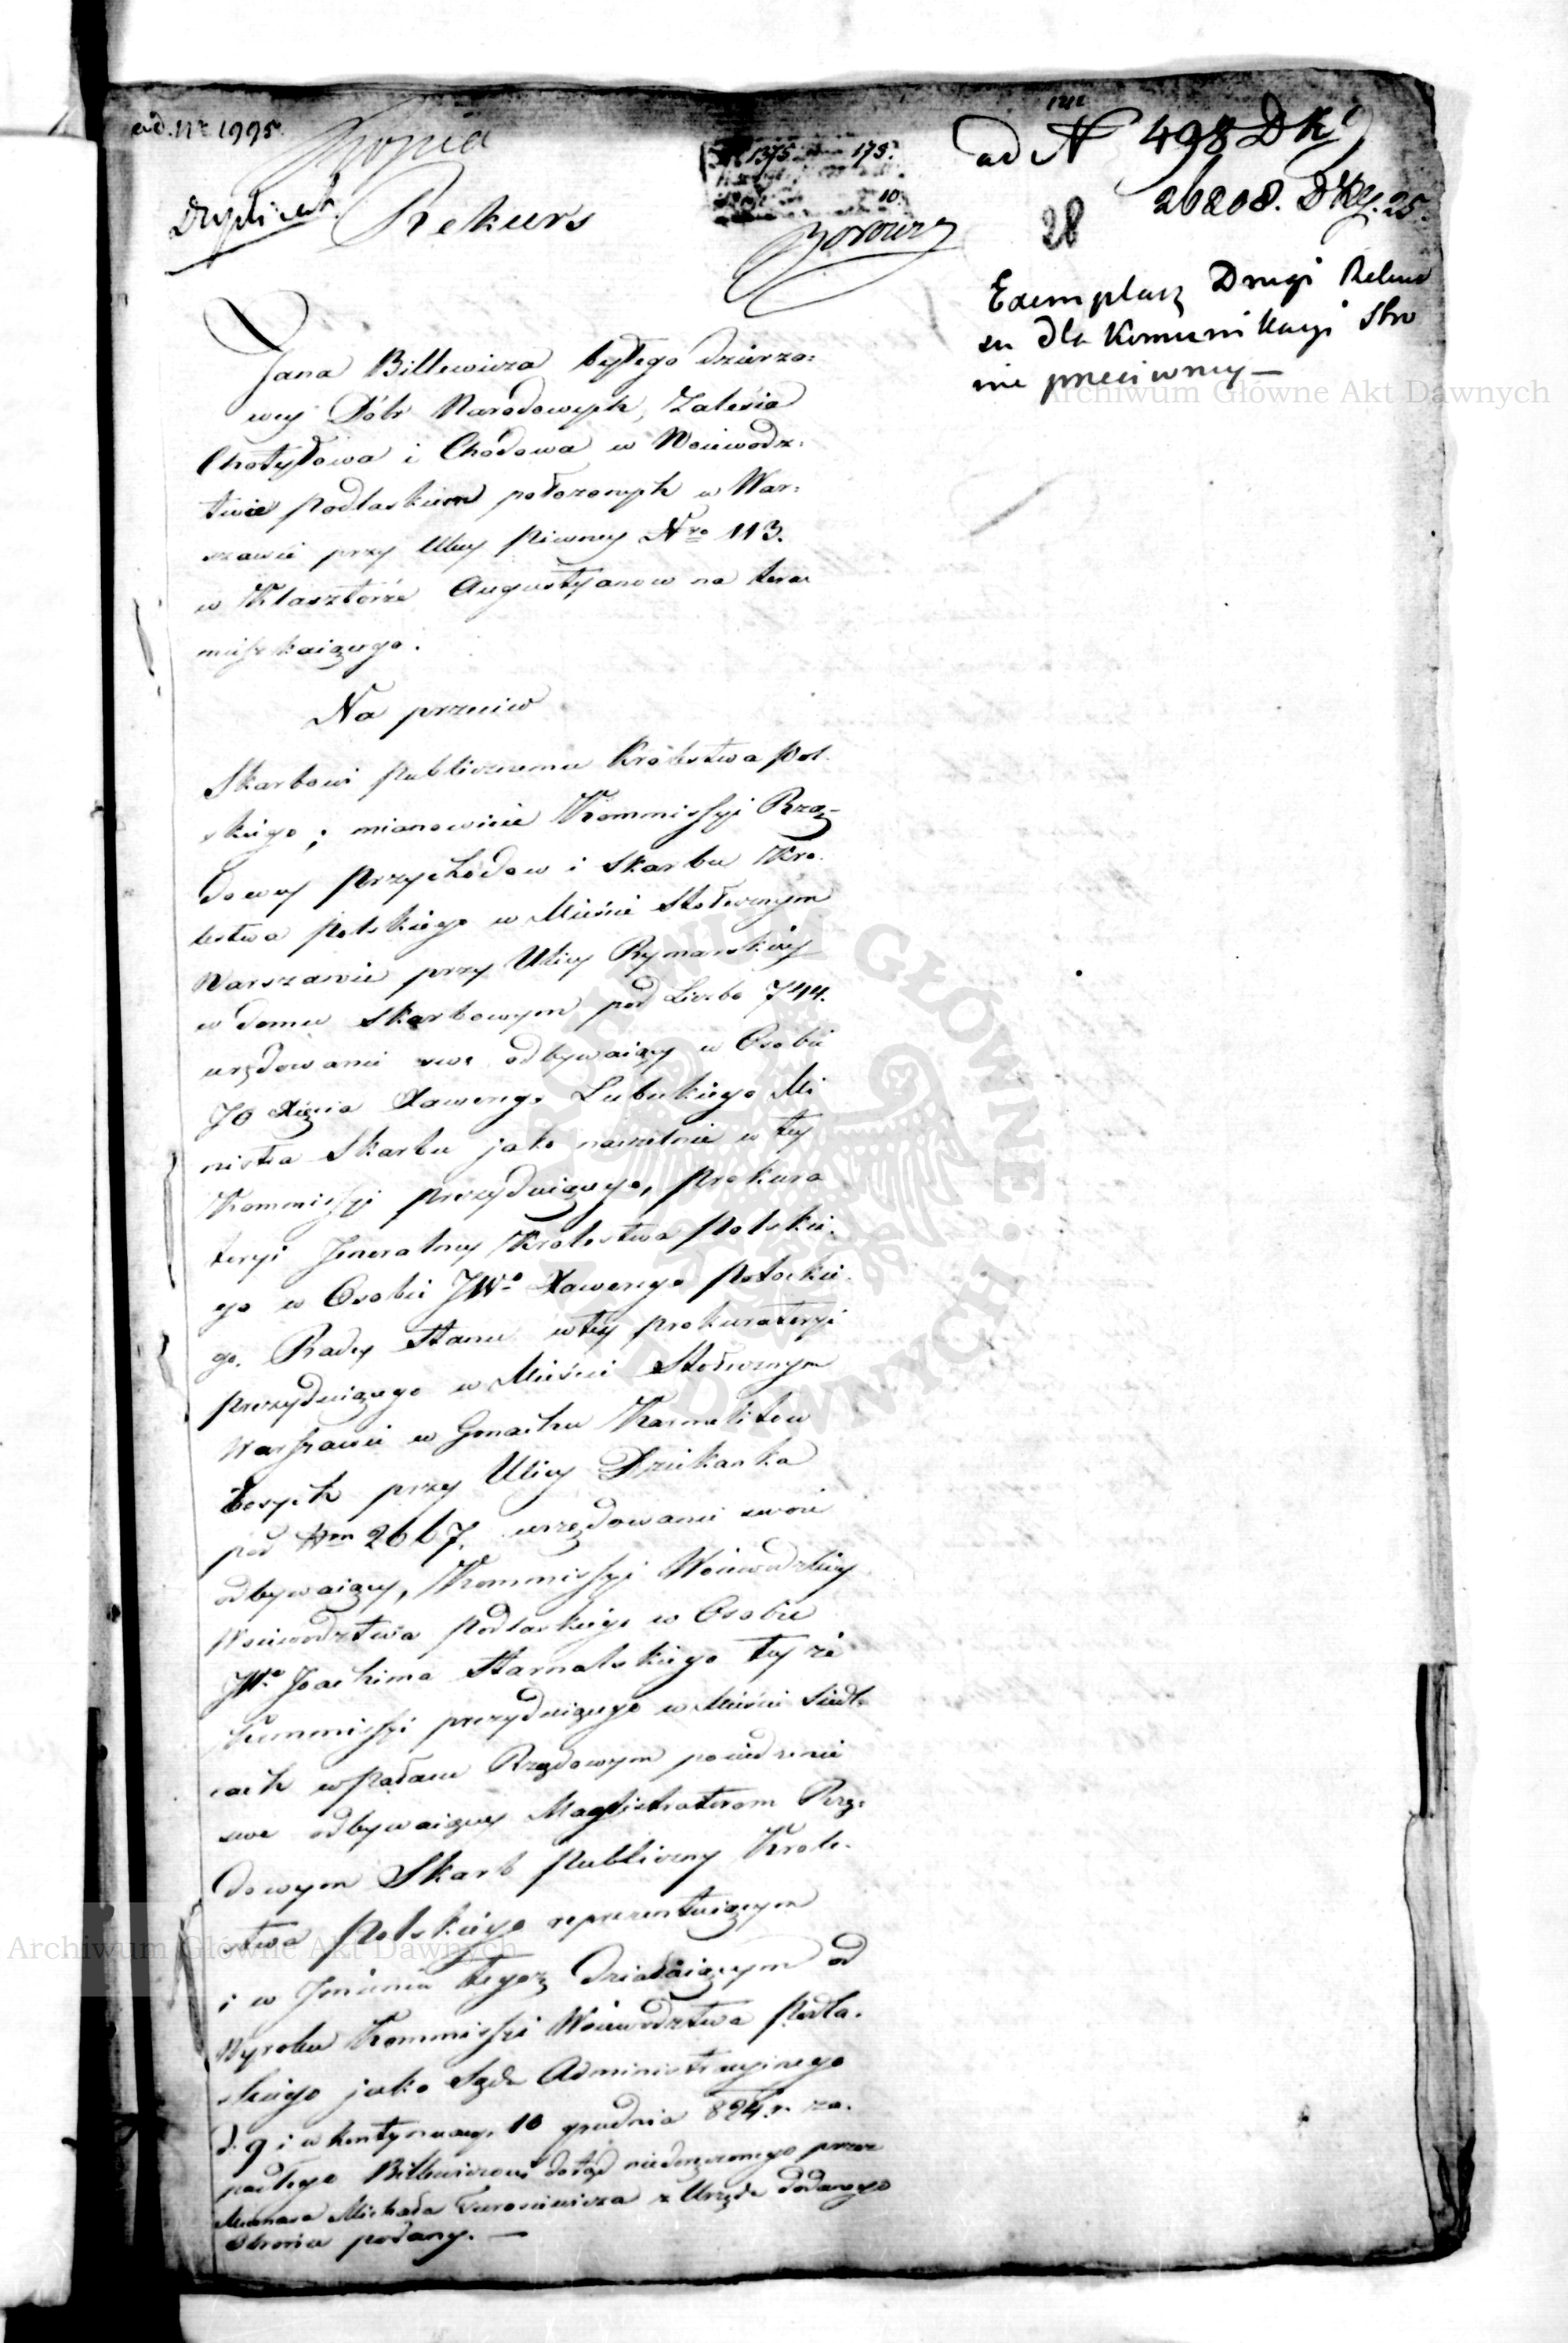 ad. Nr 1995.
Kopia
Duplicat.
Rekurs
1375 175.
10.
ad N 498 DK
26208. DKg. 25.
28
Exemplarz Drugi Rekur
su dla Komunikacyi Stro
nie przeciwney —
Jana Billewicza byłego dzierza:
wcy Dóbr Narodowych, Zalesia
Chotyłowa i Chodowa w Woiewodz:
twie Podlaskiem położonych w War:
szawie przy Ulicy Piwney Nro 113.
w Klasztorze Augustyanow na teraz
mieszkaiącego.
Na przeciw
Skarbowi Publicznemu Królestwa Pol.
skiego; mianowicie Kommissyi Rzą-
dowey Przychodow i Skarbu Kró.
lestwa Polskiego w Mieście Stołecznym
Warszawie przy Ulicy Rymarskiey
w domu Skarbowym pod Liczbą 744.
urzędowanie swe odbywaiący w Osobie
JO Xięcia Xawerego Lubeckiego Mi
nistra Skarbu jako naczelnie w tey
Kommissyi prezyduiącego, Prokura
toryi Jeneralney Krolestwa Polskie.
go w Osobie JWo Xawerego Potockie.
go. Radcy Stanu w tey Prokuratoryi
prezyduiącego w Mieście Stołecznym
Warszawie w Gmachu Karmelitow
Bosych przy Ulicy Dziekanka
pod Nrem 2667. urzędowanie swoie
odbywaiący, Kommissyi Woiewodzkiey
Woiewodztwa Podlaskiego w Osobie
JWo Joachima Starnalskiego teyże
Kommissyi prezyduiącego w Mieście Siedl.
cach w Pałacu Rządowym posiedzenie
swe odbywaiącey Magistraturom Rzą.
dowym Skarb Publiczny Krole.
stwa Polskiego reprezentuiącym
i w Jmieniu tegoż działaiącym od
Wyroku Kommissyi Woiewodztwa Podla.
skiego jako Sądu Administracyinego
d. 9 i w kontynuacyi 10 grudnia 824. r. za.
padłego Billewiczowi dotąd niedoręczonego przez
Mecenasa Michała z Urzędu dodanego
Obrońcę podany. —
Archiwum Główne Akt Dawnych
Archiwum Główne Akt Dawnych
ARCHIWUM GŁÓWNE AKT DAWNYCH